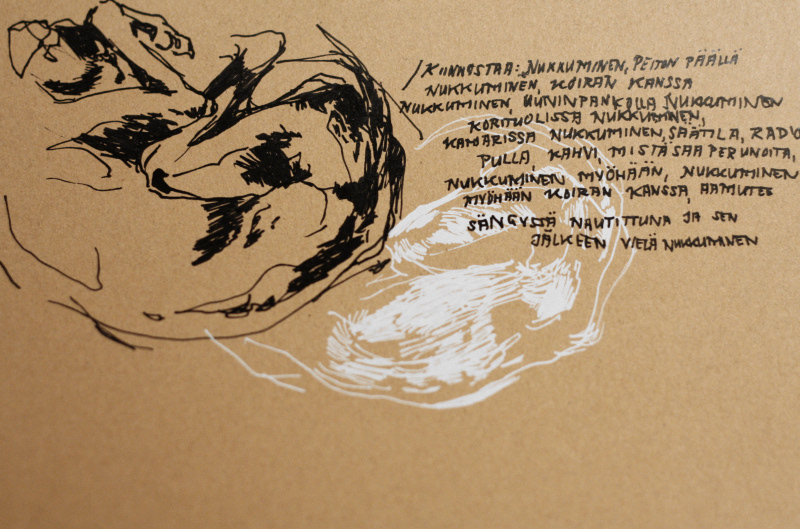 KIINNOSTAA: NUKKUMINEN, PEITON PÄÄLLÄ
NUKKUMINEN, KOIRAN KANSSA
NUKKUMINEN, UUNINPANKOLLA NUKKUMINEN
KORITUOLISSA NUKKUMINEN,
KAMARISSA NUKKUMINEN, SÄÄTILA, RADIO
PULLA, KAHVI, MISTÄ SAA PERUNOITA,
NUKKUMINEN MYÖHÄÄN, NUKKUMINEN
MYÖHÄÄN KOIRAN KANSSA, AAMUTEE
SÄNGYSSÄ NAUTITTUNA JA SEN
JÄLKEEN VIELÄ NUKKUMINEN